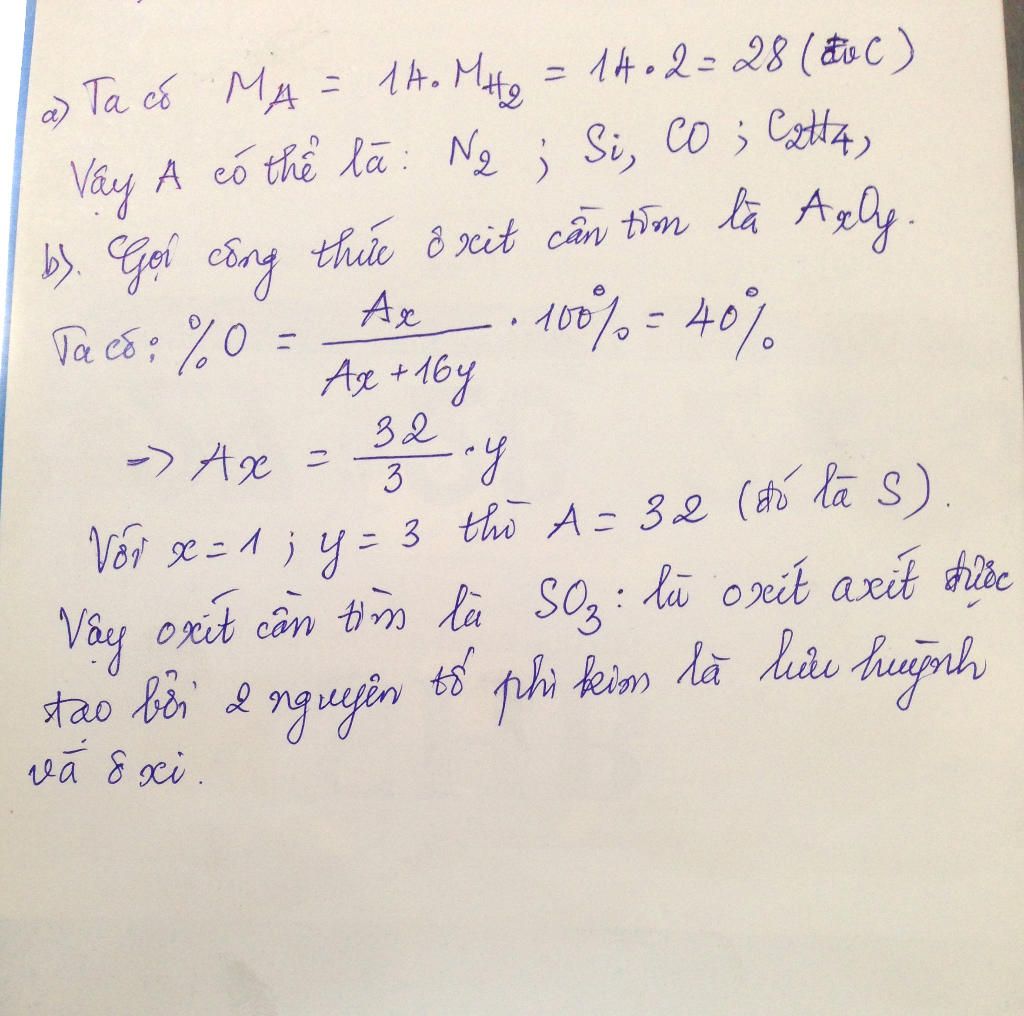 a) Ta có M_A = 14.M_H₂ = 14.2 = 28 (đvC)
Vậy A có thể là: N₂ ; Si, CO ; C₂H₄,
b). Gọi công thức ôxit cần tìm là AxOy.
Ta có: %O = Ax / (Ax + 16y) . 100% = 40%
=> Ax = 32/3 . y
Với x = 1 ; y = 3 thì A = 32 (đó là S).
Vậy oxít cần tìm là SO₃ : là oxít axít được
tạo bởi 2 nguyên tố phi kim là lưu huỳnh
và ôxi.